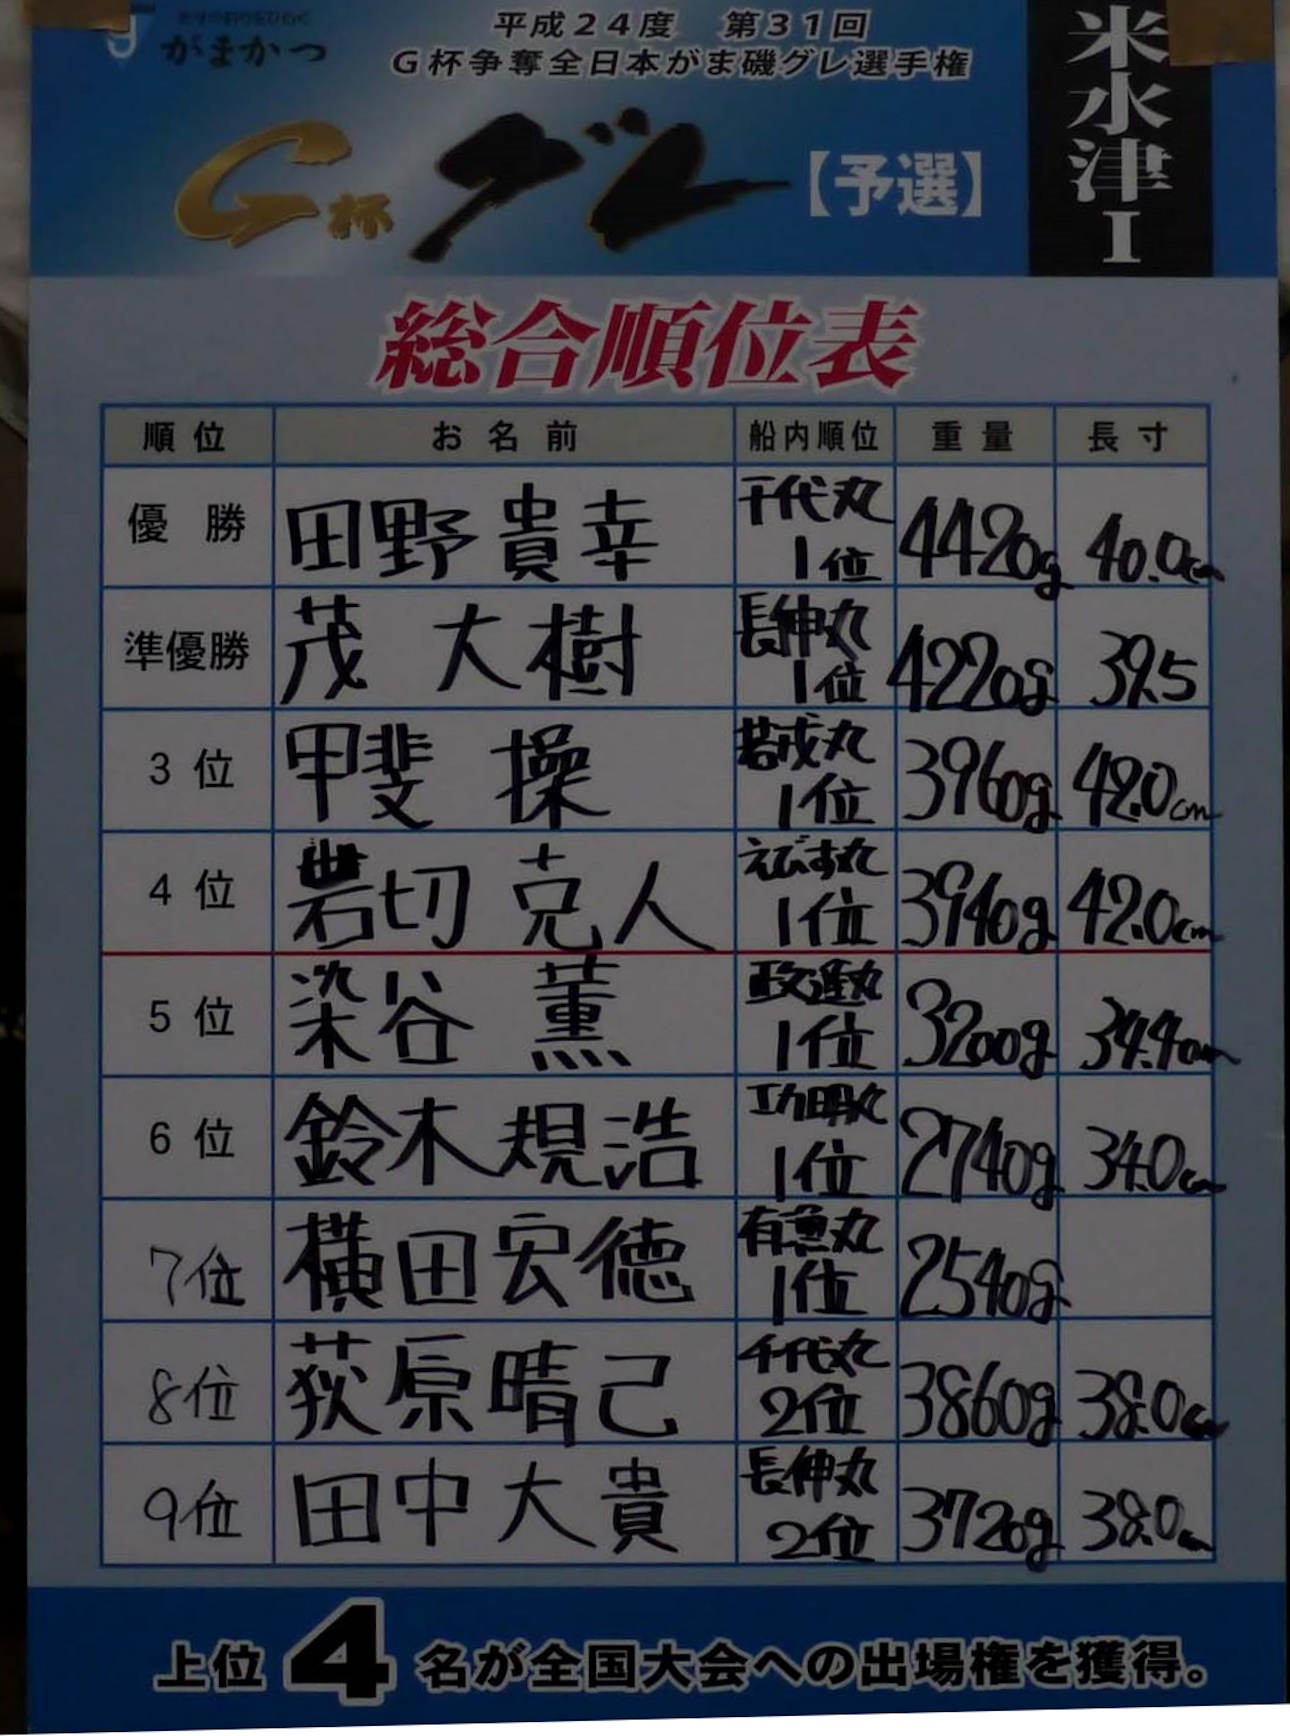 がまかつ
平成24度 第31回
G杯争奪全日本がま磯グレ選手権
米水津I
G杯グレ【予選】
総合順位表
順位 お名前 船内順位 重量 長寸
優勝 田野貴幸 千代丸 1位 4420g 40.0cm
準優勝 茂 大樹 長伸丸 1位 4220g 39.5
3位 甲斐 操 若戎丸 1位 3960g 42.0cm
4位 岩切 克人 えびす丸 1位 3940g 42.0cm
5位 染谷 薫 政運丸 1位 3200g 34.4cm
6位 鈴木規浩 功明丸 1位 2740g 34.0cm
7位 横田宏徳 有漁丸 1位 2540g
8位 荻原晴己 千代丸 2位 3860g 38.0cm
9位 田中大貴 長伸丸 2位 3720g 38.0cm
上位4名が全国大会への出場権を獲得。